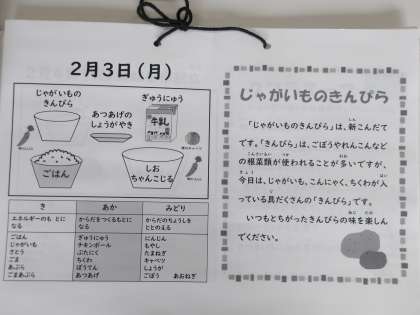 2月3日(月)
じゃがいもの
きんぴら
あつあげの
しょうがやき
ぎゅうにゅう
牛乳
ごはん
しお
ちゃんこじる
き
あか
みどり
エネルギーのもとに
なる
からだをつくるもとに
なる
からだのちょうしを
ととのえる
ごはん
じゃがいも
さとう
ごま
あぶら
ごまあぶら
ぎゅうにゅう
チキンボール
ぶたにく
ちくわ
ぼうてん
あつあげ
にんじん
もやし
たまねぎ
キャベツ
しょうが
ごぼう あおねぎ
じゃがいものきんぴら
「じゃがいものきんぴら」は、新こんだて
です。「きんぴら」は、ごぼうやれんこんなど
の根菜類が使われることが多いですが、
今日は、じゃがいも、こんにゃく、ちくわが入
っている具だくさんの「きんぴら」です。
いつもとちがったきんぴらの味を楽しん
でください。